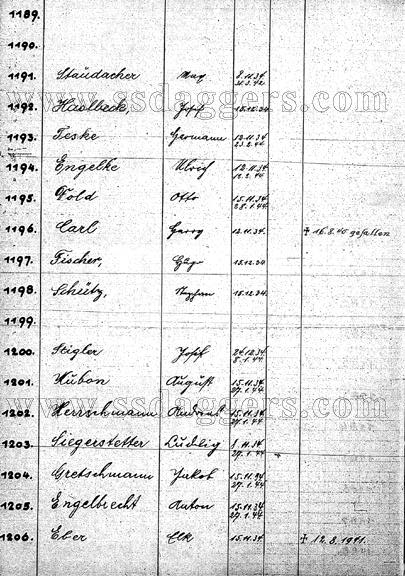 1189.
1190.
1191. Staudacher Max 8.11.34. 31.3.42
www.ssdaggers.com
1192. Haslbeck, Josef 15.12.34
1193. Teske Hermann 12.11.34 23.2.44
www.ssdaggers.com
1194. Engelke Ulrich 12.11.34 12.2.44
1195. Dold Otto 15.11.34 28.1.44
1196. Carl Georg 12.11.34. † 16.8.40 gefallen
1197. Fischer, 15.12.34
1198. Schütz, Stephan 15.12.34.
www.ssdaggers.com
1199.
1200. Stigler Josef 24.12.34 8.1.44
1201. Kubon August 15.11.34 27.1.44
1202. Herrschmann 15.11.34 27.1.44
www.ssdaggers.com
1203. Siegerstetter Ludwig 8.11.34 27.1.44
1204. Gretschmann Jakob 15.11.34 27.1.44
1205. Engelbrecht Anton 15.11.34 27.1.44
1206. Eber 15.11.34 † 12.8.1941.